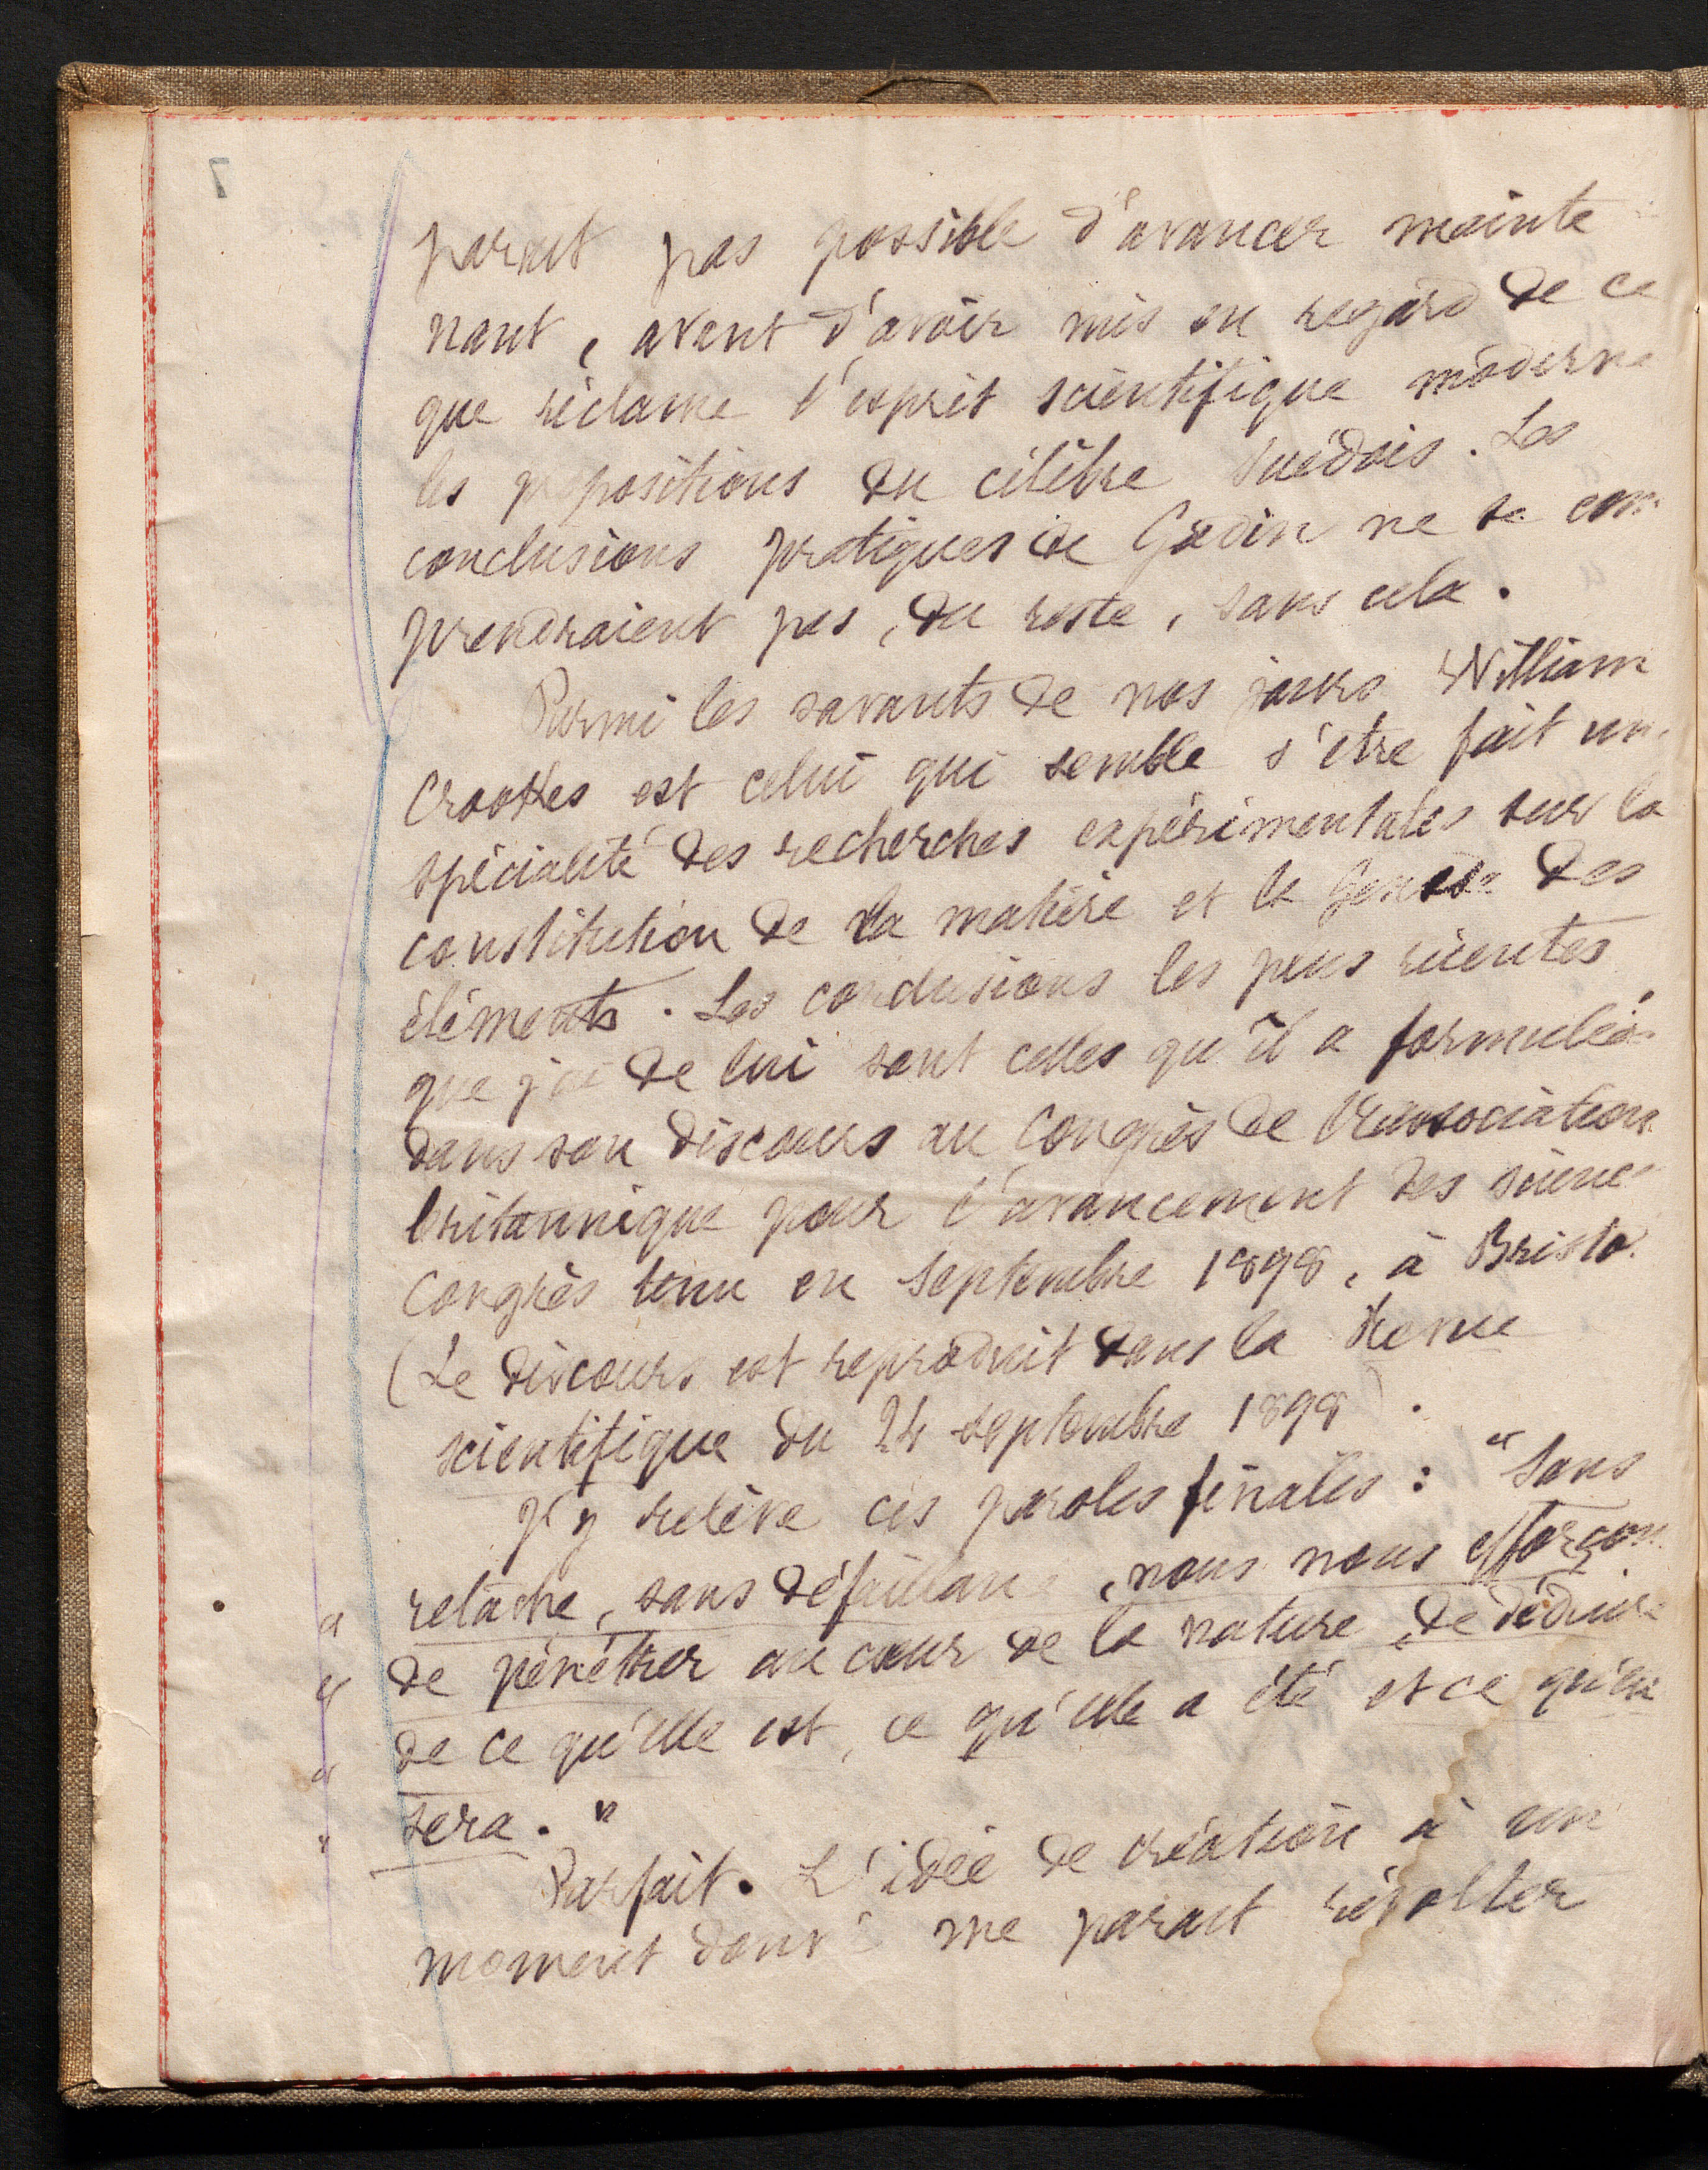 paraît pas possible d'avancer mainte
nant, avant d'avoir mis en regard de ce
que réclame l'esprit scientifique moderne
les propositions du célèbre suédois. Les
conclusions pratiques de Godin ne se com
prendraient pas, du reste, sans cela.
Parmi les savants de nos jours William
Crookes est celui qui semble s'être fait une
spécialité des recherches expérimentales sur la
constitution de la matière et la Genèse des
éléments. Les conclusions les plus récentes
que j'ai de lui sont celles qu'il a formulées
dans son discours au Congrès de l'association
britannique pour l'avancement des sciences
Congrès tenu en septembre 1898, à Bristol.
(Le discours est reproduit dans la Revue
scientifique du 24 septembre 1898).
J'y relève ces paroles finales : "Sans
" relâche, sans défaillance, nous nous efforçons
" de pénétrer au cœur de la nature, de déduire
" de ce qu'elle est, ce qu'elle a été et ce qu'elle
" sera."
Parfait. L'idée de création à un
moment donné me paraît révolter